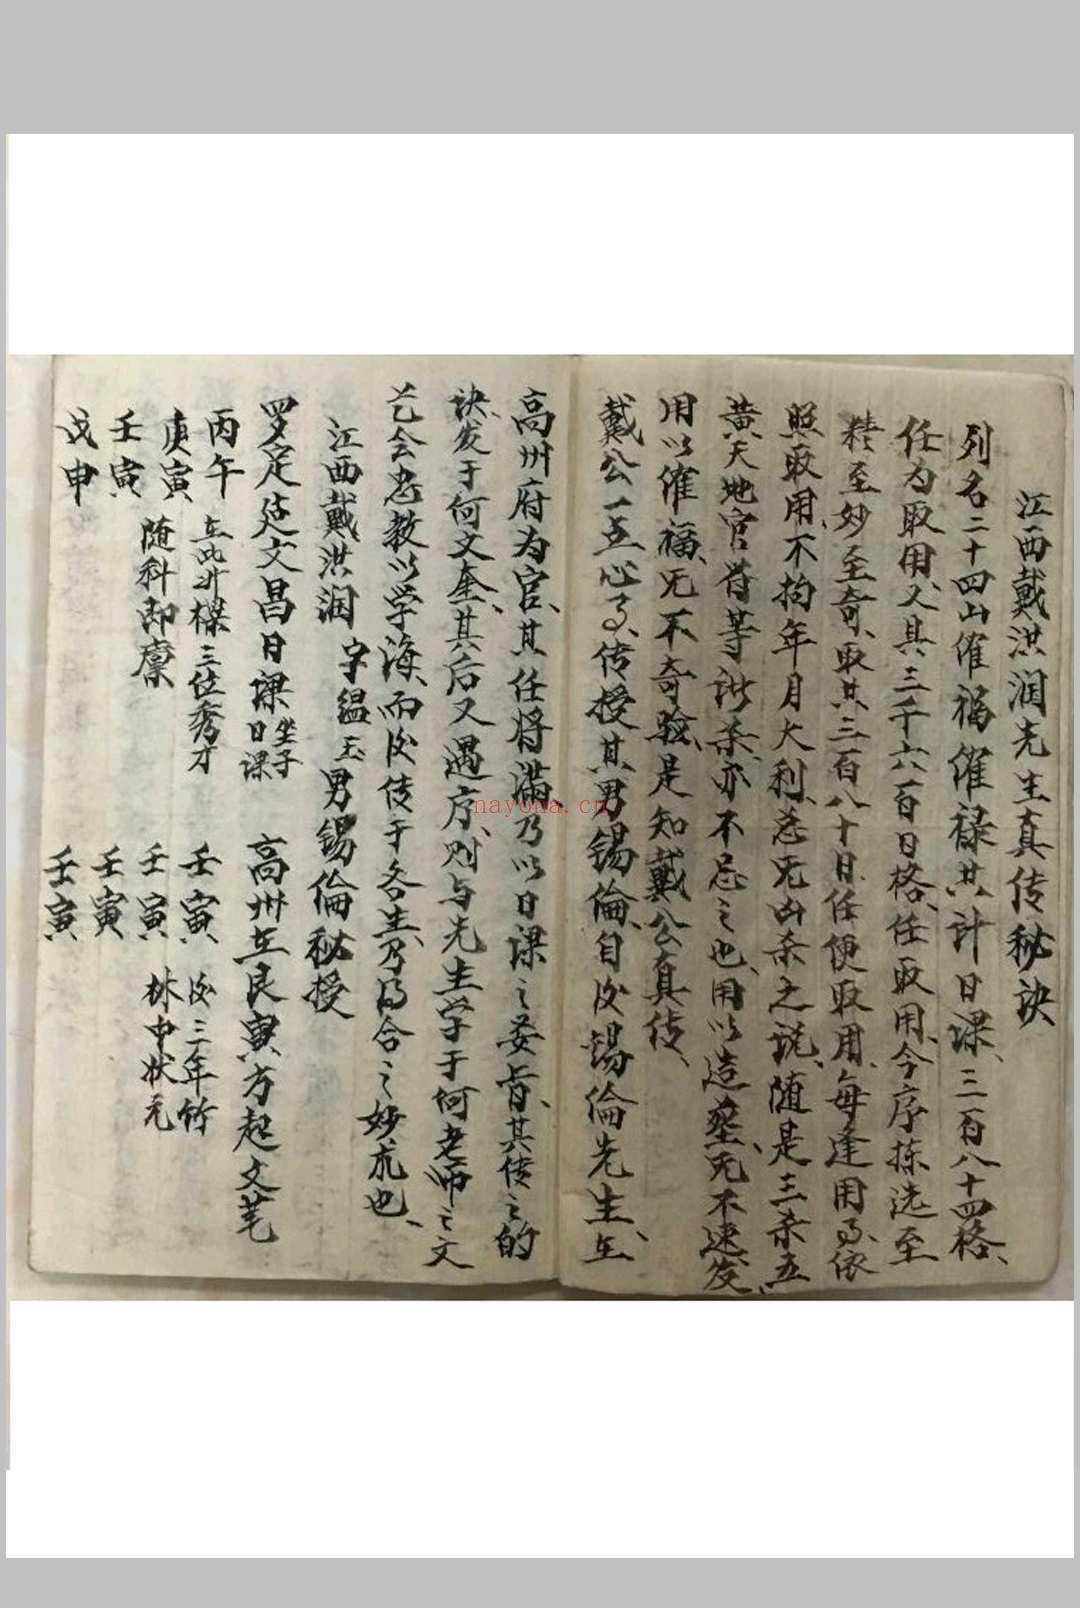 江西戴洪润先生真传秘诀
列名二十四山催福催禄共计日课、三百八十四格、
任为取用、又具三千六百日格、任取用、今序拣选至
精至妙至奇、取共三百八十日、任便取用、每逢用了、依
照取用、不拘年月大利、忌无凶杀之说、随是三杀五
黄天地官符等诸杀、亦不忌之也、用以造葬、无不速发、
用以催福、无不奇验、是知戴公真传、
戴公一点心了、传授其男锡倫、自后锡倫先生、在
高州府为官、其任将满、乃以日课之妾旨、其传之的
诀、发于何文奎、其后又遇序、则与先生学于何老师之文
艺会忠教以学海、而后传于各生、乃得合之妙也、
江西戴洪润 字緼玉 男锡倫秘授
罗定造文昌日课 坐子日课
丙午
庚寅
壬寅
戊申
在此升樑三位秀才
随科即廪
高州在艮寅方起文笔
壬寅
壬寅
壬寅
壬寅
后三年竹
林中状元
nayona.cn